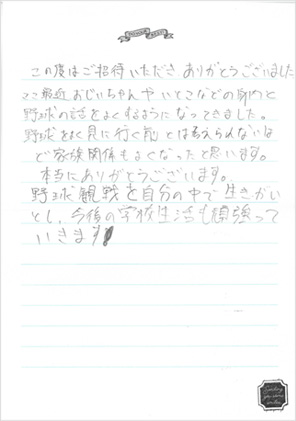 この度はご招待いただき ありがとうございました
ここ最近おじいちゃんやいとこなどの身内と
野球の話をよくするようになってきました。
野球をよく見に行く前とは考えられないほ
ど家族関係もよくなったと思います。
本当にありがとうございます。
野球観戦を自分の中で生きがい
とし、今後の学校生活も頑張って
いきます